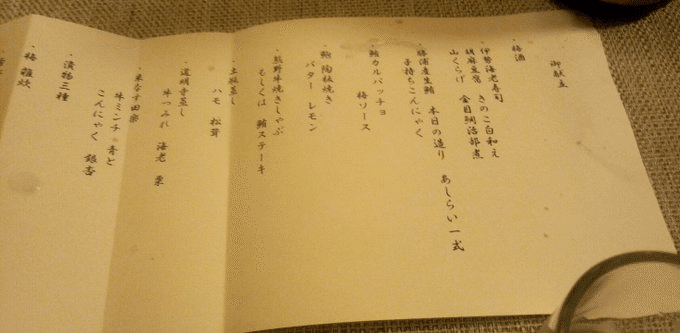 御献立
・梅酒
・伊勢海老寿司 きのこ白和え
胡麻豆腐 金目鯛治部煮
山くらげ
・勝浦産生鮪 本日の造り あしらい一式
子持ちこんにゃく
・鮪カルパッチョ
梅ソース
・鮑陶板焼き
バター レモン
・熊野牛焼きしゃぶ
もしくは 鮪ステーキ
・土瓶蒸し
ハモ 松茸
・道明寺蒸し
牛つみれ 海老 栗
・米なす田楽
牛ミンチ 青と
こんにゃく 銀杏
・漬物三種
・梅雑炊